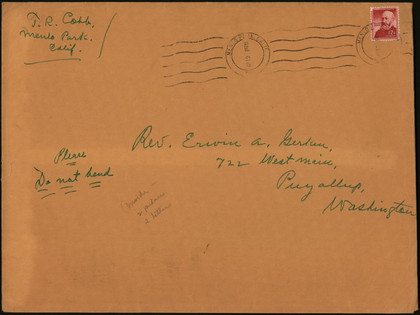 T. R. Cobb.
Menlo Park.
Calif.
Rev. Erwin A.
722 West main,
Puyallup,
Washington
Please
Do not bend